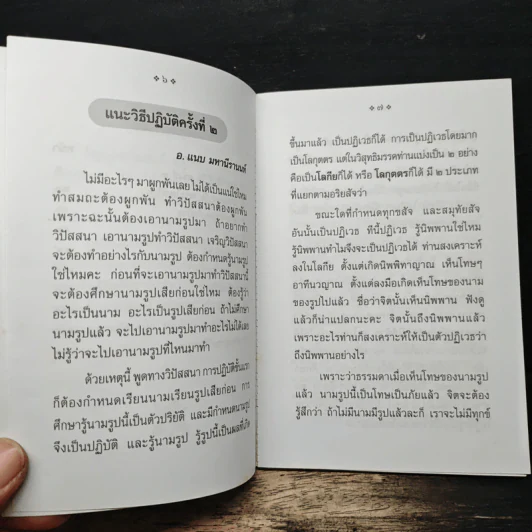 ❖ ๖ ❖
แนะวิธีปฏิบัติครั้งที่ ๒
อ. แนบ มหานีรานนท์
ไม่มีอะไรๆ มาผูกพันเลย ไม่ได้เป็นแน่ใช่ไหม
ทำสมถะต้องผูกพัน ทำวิปัสสนาต้องผูกพัน
เพราะฉะนั้นต้องเอานามรูปมา ถ้าอยากทำ
วิปัสสนา เอานามรูปทำวิปัสสนา เจริญวิปัสสนา
จะต้องทำอย่างไรกับนามรูป ต้องกำหนดรู้นามรูป
ใช่ไหมคะ ก่อนที่จะเอานามรูปมาทำวิปัสสนานี้
จะต้องศึกษานามรูปเสียก่อนใช่ไหม ต้องรู้ว่า
อะไรเป็นนาม อะไรเป็นรูปเสียก่อน ถ้าไม่ศึกษา
นามรูปแล้ว จะไปเอานามรูปมาทำอะไรไม่ได้เลย
ไม่รู้ว่าจะไปเอานามรูปที่ไหนมาทำ
ด้วยเหตุนี้ พูดทางวิปัสสนา การปฏิบัติขั้นแรก
ก็ต้องกำหนดเรียนนามเรียนรูปเสียก่อน การ
ศึกษารู้นามรูปนี้เป็นตัวปริยัติ และมีกำหนดนามรูป
จึงเป็นปฏิบัติ และรู้นามรูป รู้รูปนี้เป็นผลที่เกิด
❖ ๗ ❖
ขึ้นมาแล้ว เป็นปฏิเวธก็ได้ การเป็นปฏิเวธโดยมาก
เป็นโลกุตตร แต่ในวิสุทธิมรรคท่านแบ่งเป็น ๒ อย่าง
คือเป็นโลกียก็ได้ หรือ โลกุตตรก็ได้ มี ๒ ประเภท
ที่แยกตามอริยสัจว่า
ขณะใดที่กำหนดทุกขสัจ และสมุทัยสัจ
อันนั้นเป็นปฏิเวธ ทีนี้ปฏิเวธ รู้นิพพานใช่ไหม
รู้นิพพานทำไมจึงจะเป็นปฏิเวธได้ ท่านสงเคราะห์
ลงในโลกีย ตั้งแต่เกิดนิพพิทาญาณ เห็นโทษๆ
อาทีนวญาณ ตั้งแต่ลงมือเกิดเห็นโทษของนาม
ของรูปไปแล้ว ชื่อว่าจิตนั้นเห็นนิพพาน ฟังดู
แล้วก็น่าแปลกนะคะ จิตนั้นถึงนิพพานแล้ว
เพราะอะไรท่านก็สงเคราะห์ให้เป็นตัวปฏิเวธว่า
ถึงนิพพานอย่างไร
เพราะว่าธรรมดาเมื่อเห็นโทษของนามรูป
แล้ว นามรูปนี้เป็นโทษเป็นภัยแล้ว จิตจะต้อง
รู้สึกว่า ถ้าไม่มีนามมีรูปแล้วละก็ เราจะไม่มีทุกข์